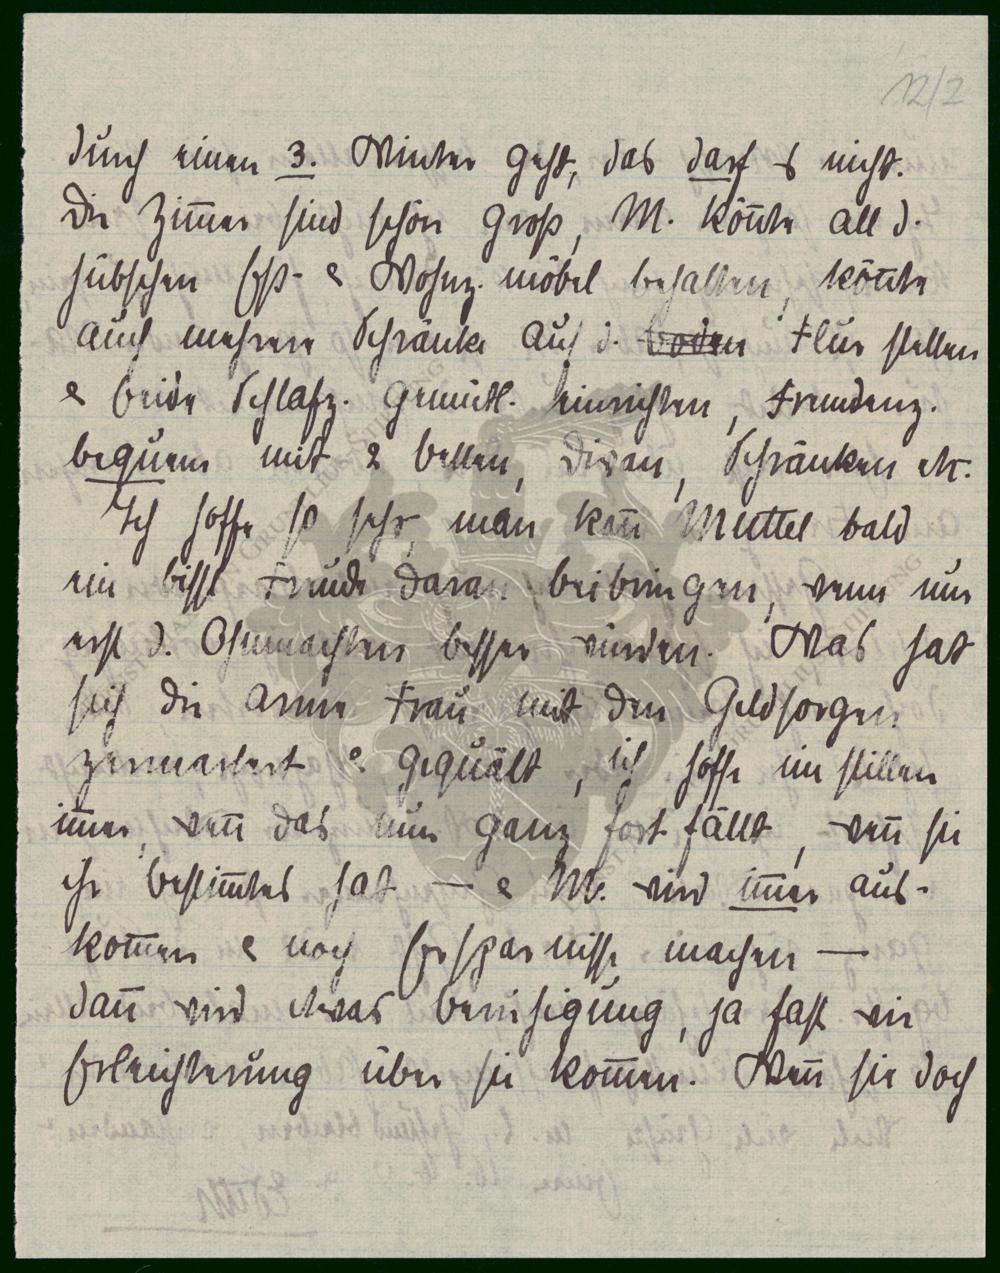 12/2
durch einen 3. Winter geht, das darf s nicht.
Die Zim̅er sind schön groß, M. kön̅te all d.
hübschen Eß- & Wohnz. möbel behalten, kön̅te
auch mehrere Schränke auf d. boden Flur stellen
& beide Schlafz. gemütl. einrichten, Fremdenz.
bequem mit 2 betten, Divan, Schränken etc.
Ich hoffe so sehr, man kan̅ Muttel bald
ein bissl Freude daran beibringen, wenn nur
erst d. Ohnmachten besser würden. Was hat
sich die arme Frau mit den Geldsorgen
zermartert & gequält, ich hoffe im stillen
im̅er, wen̅ das nun ganz fort fällt, wen̅ sie
ihr bestim̅tes hat — & M. wird im̅er aus-
kom̅en & noch Ersparnisse machen —
dan̅ wird etwas beruhigung, ja fast wie
Erleichterung über sie kom̅en. Wen̅ sie doch